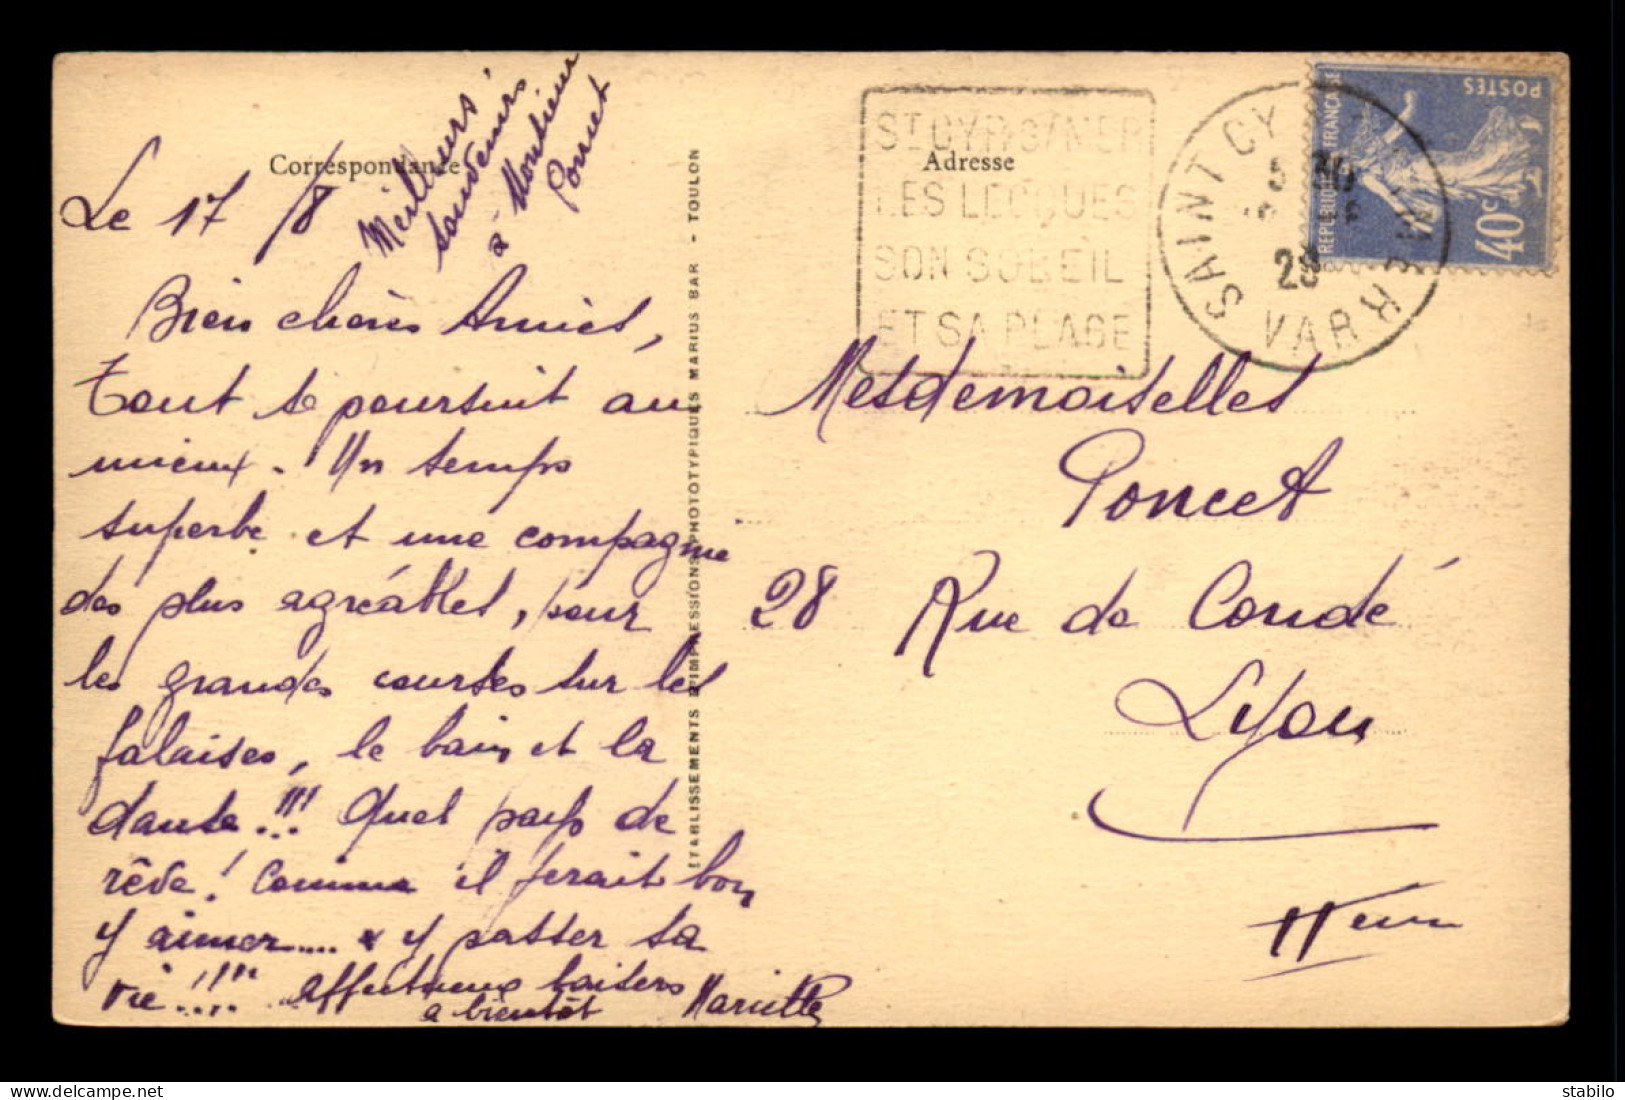 Correspondance
Le 17/8
Meilleurs
souvenirs
à Monsieur
Poncet
Bien chères Amies,
Tout se poursuit au
mieux. Un temps
superbe et une compagnie
des plus agréables, pour
les grandes courses sur les
falaises, le bain et la
danse!!! Quel pays de
rêve! Comme il ferait bon
y aimer.... & y passer sa
vie!!!! affectueux baisers
a bientôt
Mariette
ETABLISSEMENTS D'IMPRESSIONS PHOTOTYPIQUES MARIUS BAR - TOULON
Adresse
ST CYR S/MER
LES LECQUES
SON SOLEIL
ET SA PLAGE
SAINT CYR S MER
28
VAR
REPUBLIQUE FRANÇAISE
POSTES
40c
Mesdemoiselles
Poncet
28 Rue de Condé
Lyon
stabilo